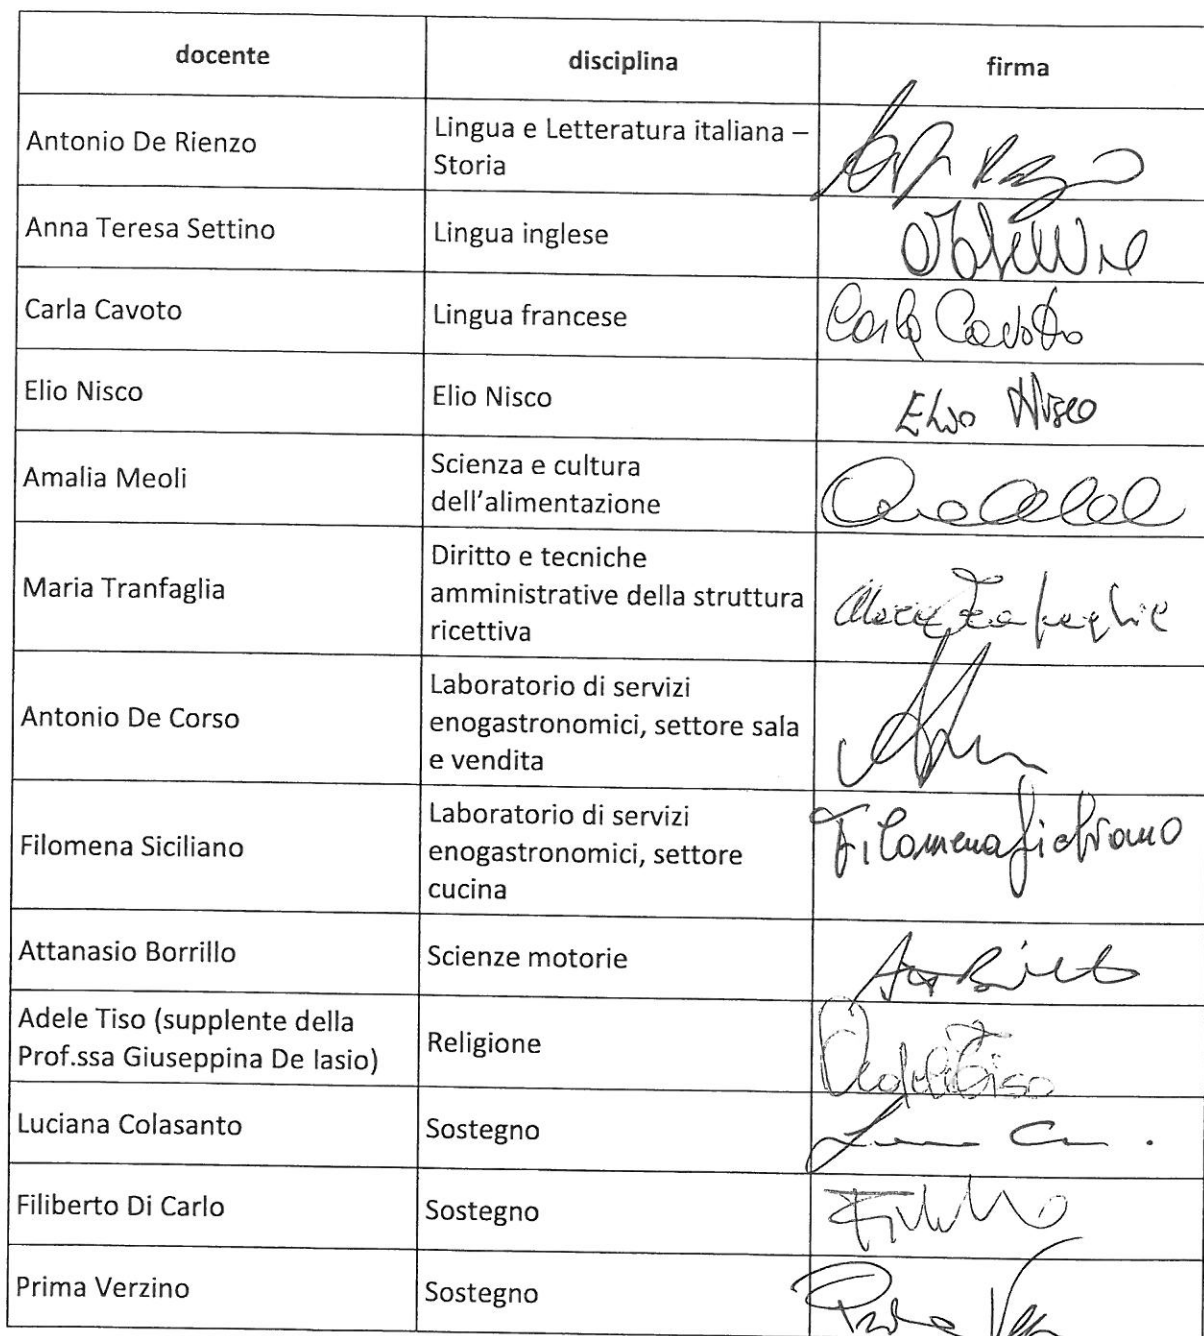 docente disciplina firma
Antonio De Rienzo
Lingua e Letteratura italiana –
Storia
Anna Teresa Settino Lingua inglese
Carla Cavoto Lingua francese Carla Cavoto
Elio Nisco Elio Nisco Elio Nisco
Amalia Meoli
Scienza e cultura
dell'alimentazione
Maria Tranfaglia
Diritto e tecniche
amministrative della struttura
ricettiva
Maria Tranfaglia
Antonio De Corso
Laboratorio di servizi
enogastronomici, settore sala
e vendita
Filomena Siciliano
Laboratorio di servizi
enogastronomici, settore
cucina
Filomena Siciliano
Attanasio Borrillo Scienze motorie
Adele Tiso (supplente della
Prof.ssa Giuseppina De Iasio)
Religione
Adele Tiso
Luciana Colasanto Sostegno
Filiberto Di Carlo Sostegno
Prima Verzino Sostegno